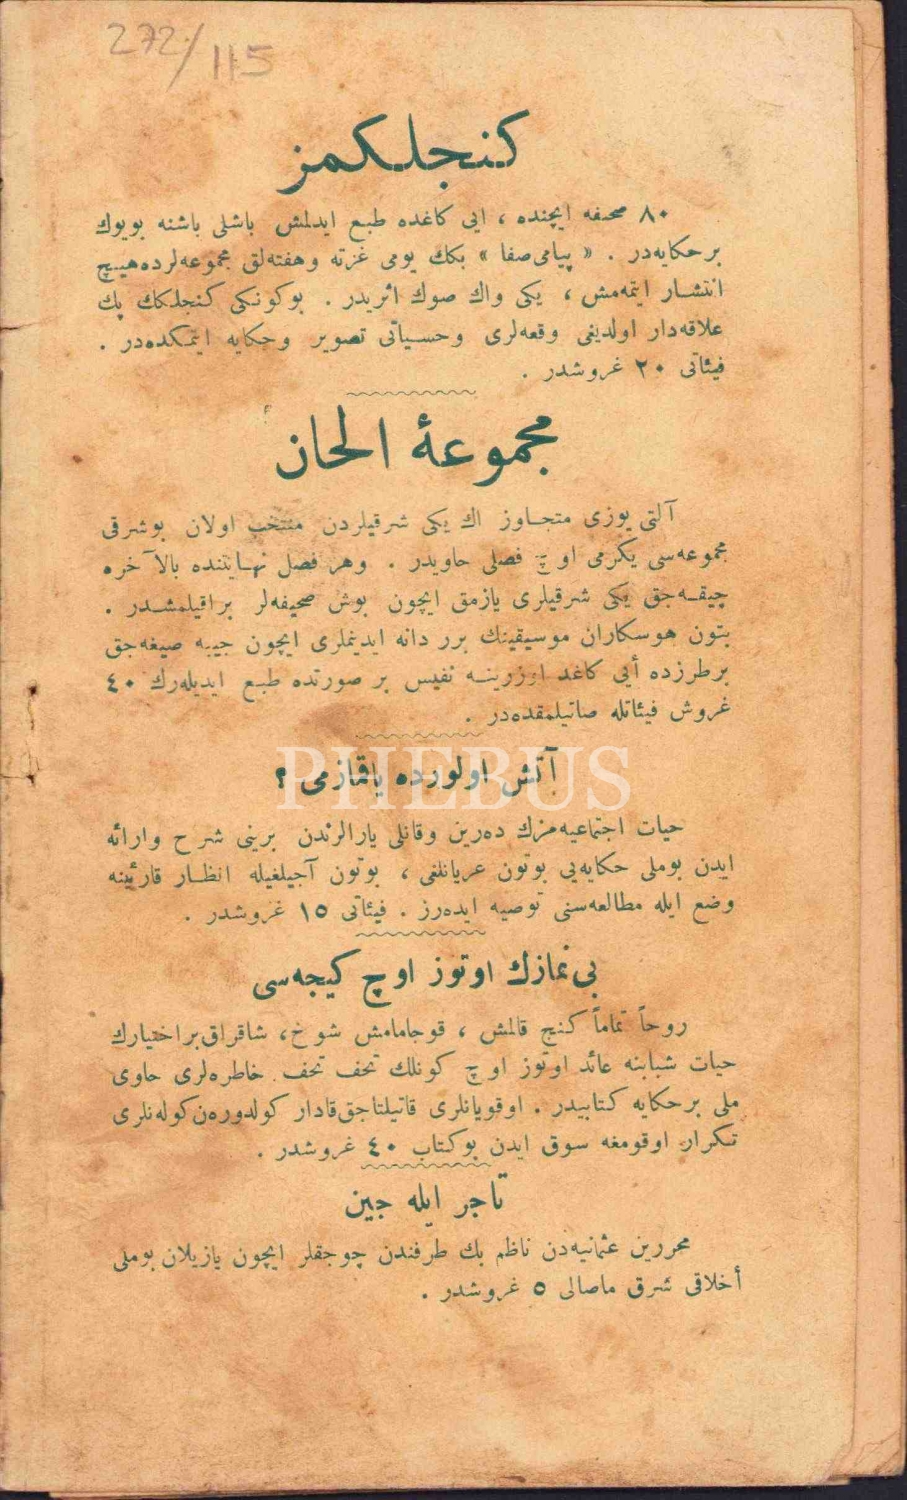 272/115
كنجلكمز
٨٠ صحيفه ايچنده ، ايى كاغده طبع ايدلمش باشلى باشنه بويوك
بر حكايه‌در . « پيامى صفا » بكك يومى غزته و هفته‌لق مجموعه‌لرده هيچ
انتشار ايتمه‌مش ، يكى واك صوك اثريدر . بوكونكى كنجلكك پك
علاقه‌دار اولديغى وقعه‌لرى وحسياتى تصوير وحكايه ايتمكده‌در .
فيئاتى ٢٠ غروشدر .
مجموعهٔ الحان
آلتى يوزى متجاوز اك يكى شرقيلردن منتخب اولان بوشرقى
مجموعه‌سى يكرمى اوچ فصلى حاويدر . وهر فصل نهايتنده بالآخره
چيقه‌جق يكى شرقيلرى يازمق ايچون بوش صحيفه‌لر براقيلمشدر .
بتون هوسكاران موسيقينك برر دانه ايدينملرى ايچون جيبه صيغه‌جق
برطرزده أيى كاغد اوزرينه نفيس بر صورتده طبع ايديله‌رك ٤٠
غروش فيئاتله صاتيلمقده‌در .
PHEBUS
آتش اولورده ياقمازمى ؟
حيات اجتماعيه‌مزك ده‌رين وقانلى يارالرندن برينى شرح وارائه
ايدن بوملى حكايه‌يى بوتون عريانلغى ، بوتون آجيلغيله انظار قارئينه
وضع ايله مطالعه‌سنى توصيه ايده‌رز . فيئاتى ١٥ غروشدر .
بى نمازك اوتوز اوچ كيجه‌سى
روحاً تماماً كنج قالمش ، قوجامامش شوخ ، شاقراق براختيارك
حيات شبابنه عائد اوتوز اوچ كونلك تحف تحف خاطره‌لرى حاوى
ملى بر حكايه كتابيدر . اوقويانلرى قاتيلتاجق قادار كولدوره‌ن كوله‌نلرى
تكرار اوقومغه سوق ايدن بوكتاب ٤٠ غروشدر .
تاجر ايله جين
محررين عثمانيه‌دن ناظم بك طرفندن چوجقلر ايچون يازيلان بوملى
أخلاقى شرق ماصالى ٥ غروشدر .